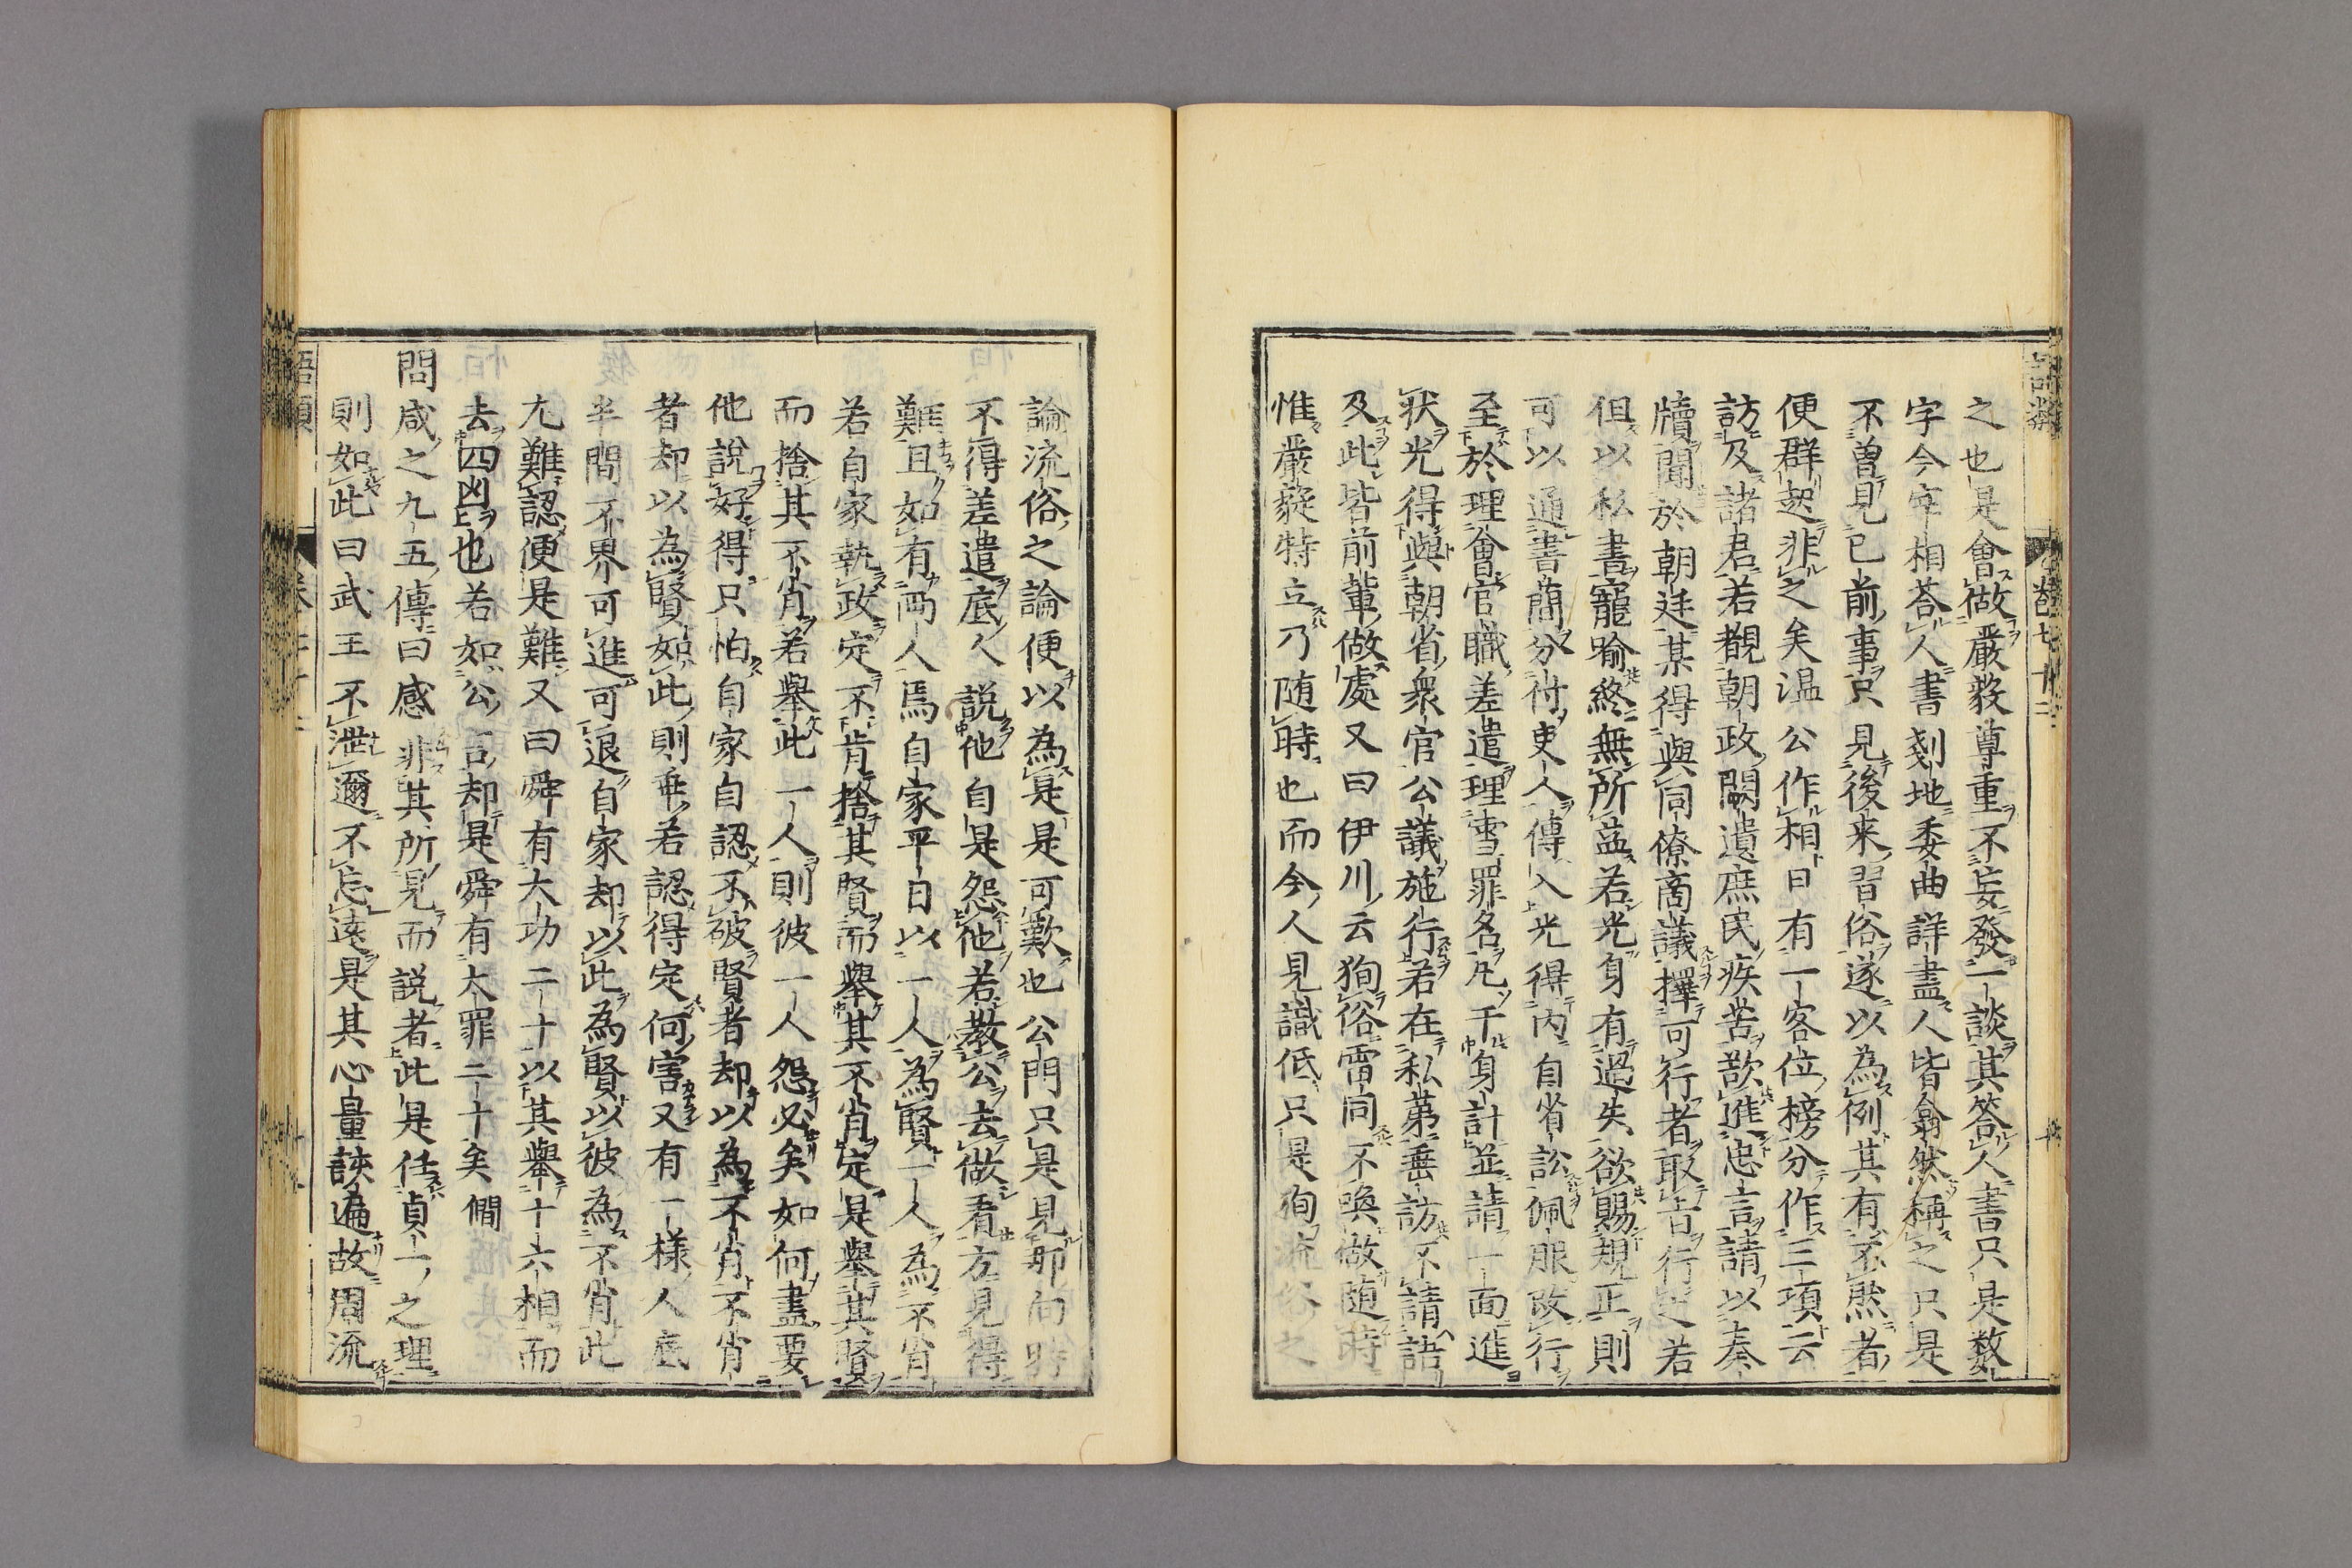 之也是會做嚴毅尊重不妄發一談其答人書只是数
字今宰相荅人書剗地委曲詳盡人皆翕然稱之只是
不曽見已前事只見後来習俗遂以為例其有不然者
便群起非之矣温公作相日有一客位榜分作三項云
訪及諸君若覩朝政闕遺庶民疾苦欲進忠言請以奏
牘聞於朝廷某得與同僚商議擇可行者取吉行之若
但以私書寵喻終無所益若光身有過失欲賜規正則
可以通書簡分付吏人傳入光得内自省訟佩服改行
至於理會官職差遣理雪罪名凡干身計並請一面進
狀光得與朝省衆官公議施行若在私第垂訪不請語
及此皆前輩做處又曰伊川云狥俗雷同不喚做随時
惟嚴毅特立乃随時也而今人見識低只是狥流俗之
論流俗之論便以為是是可歎也公門只是見那向時
不得差遣底人説他自是怨他若教公去做看方見得
難且如有兩人焉自家平日以一人為賢一人為不肖
若自家執政定不肯捨其賢而舉其不肖定是舉其賢
而捨其不肖若舉此一人則彼一人怨必矣如何盡要
他説好得只怕自家自認不破賢者却以為不肖不肖
者却以為賢如此則乖若認得定何害又有一様人底
半間不界可進可退自家却以此為賢以彼為不肖此
尤難認便是難又曰舜有大功二十以其舉十六相而
去四凶也若如公言却是舜有大罪二十矣僩
問咸之九五傳曰感非其所見而説者此是任貞一之理
則如此曰武王不泄邇不忘遠是其心量該遍故周流
語類
卷七十二